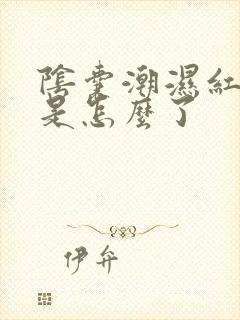 陰囊潮濕紅
是怎麼了
伊弁